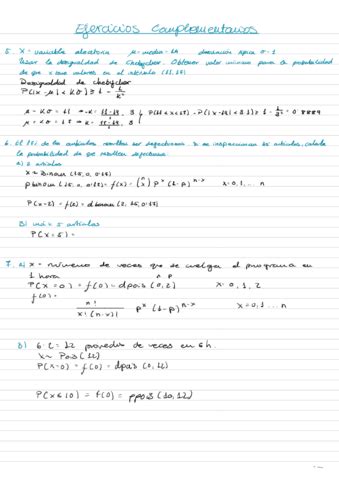 Ejercicios Complementarios
5. X = variable aleatoria μ = media = 14 desviación típica σ = 1
Usar la desigualdad de Chebychev. Obtener valor mínimo para la probabilidad
de que X tome valores en el intervalo (11, 17)
Desigualdad de chebychev
P(|X - μ| < Kσ) ≥ 1 - 1/K²
6. El 18% de los artículos resultan ser defectuosos. Si se inspeccionan 15 artículos, calcula
la probabilidad de que resulten defectuosos
a) 2 artículos
X ~ binom (15, 0,18)
pbinom (15, 0,18) = f(x) = (n x) p^x (1-p)^n-x x = 0, 1, ... n
P(X=2) = f(2) = dbinom (2, 15, 0,18)
B) más 5 artículos
P(X = 5) =
7. a) X = número de veces que se cuelga el programa en
1 hora
P(X = 0) = f(0) = dpois (0, 2) x = 0, 1, 2
f(0) =
n! / x! (n-x)! p^x (1-p)^n-x x = 0, 1 ... n
b) 6·2 = 12 promedio de veces en 6 h.
X ~ Pois (12)
P(X=0) = f(0) = dpois (0, 12)
P(X ≤ 10) = f(0) = ppois (10, 12)